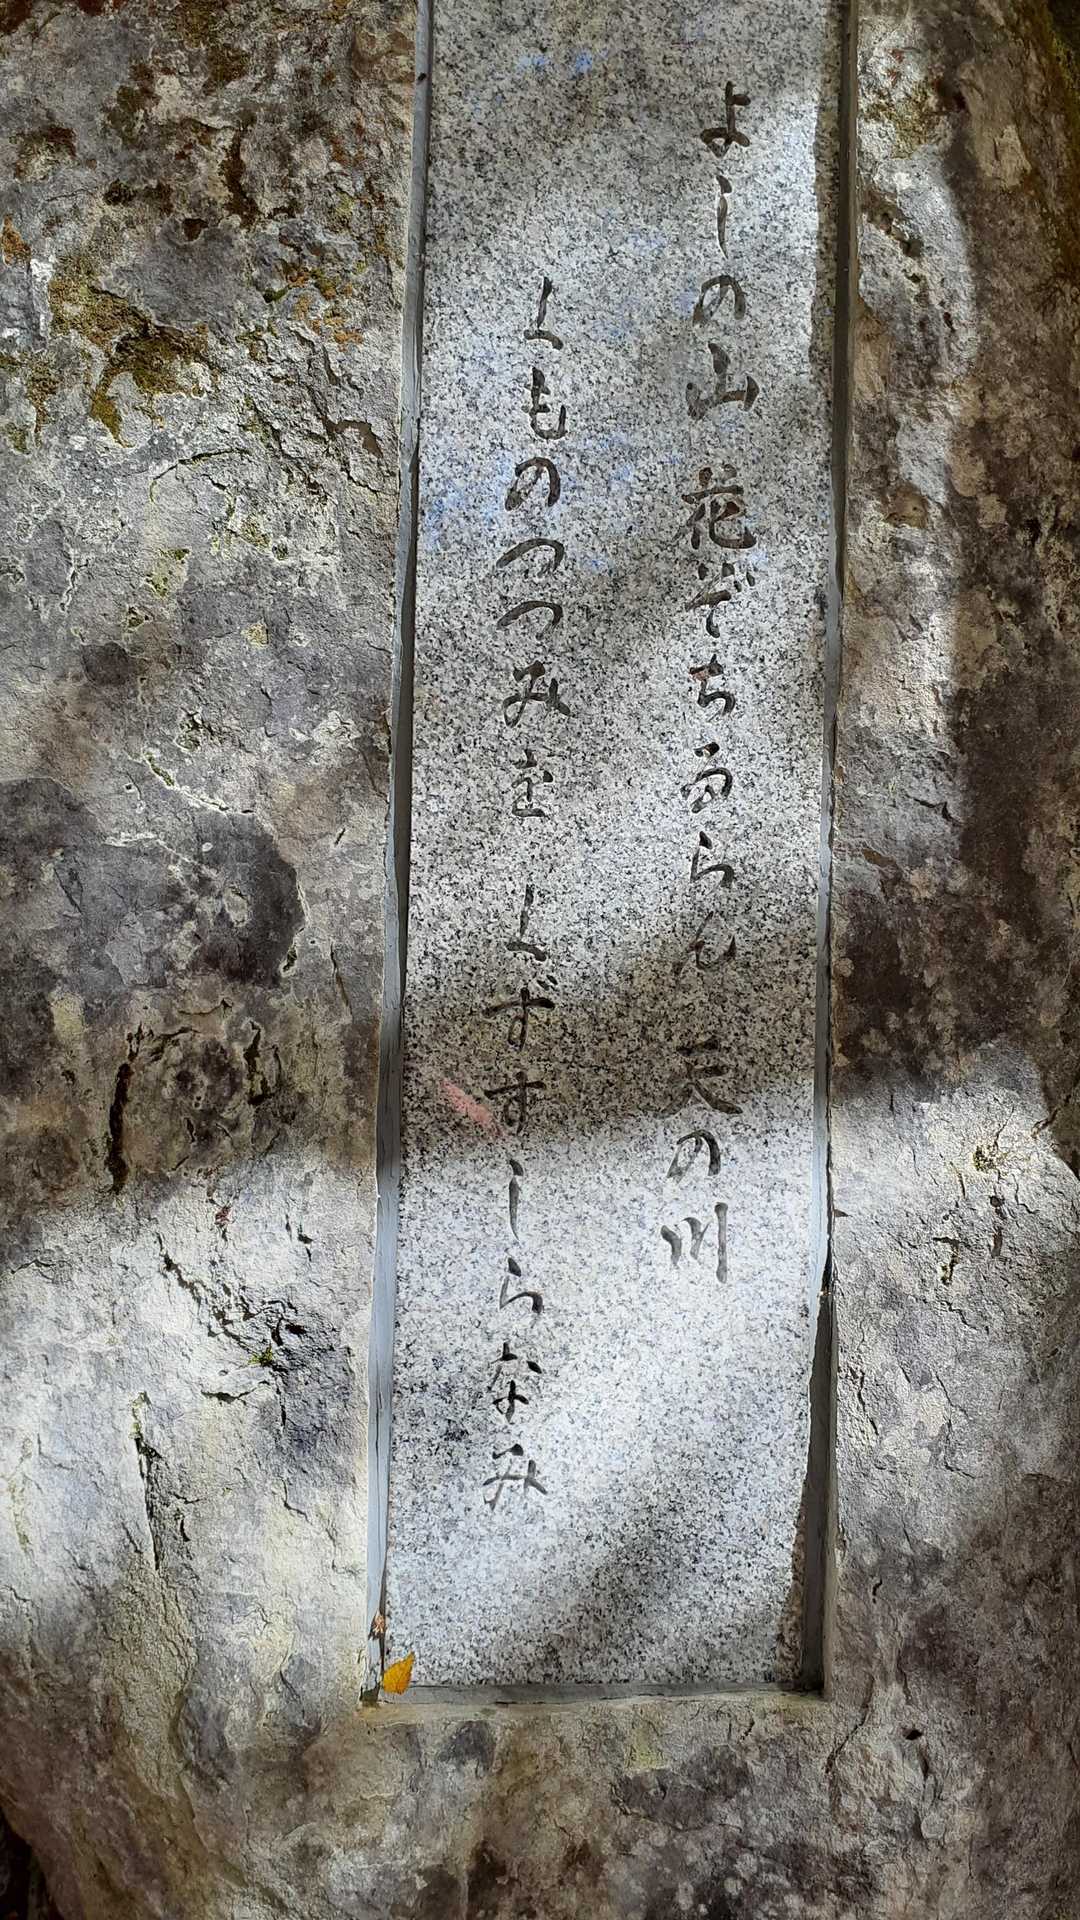 よしの山 花ぞちるらん 天の川
くものつつみを くずすしらなみ